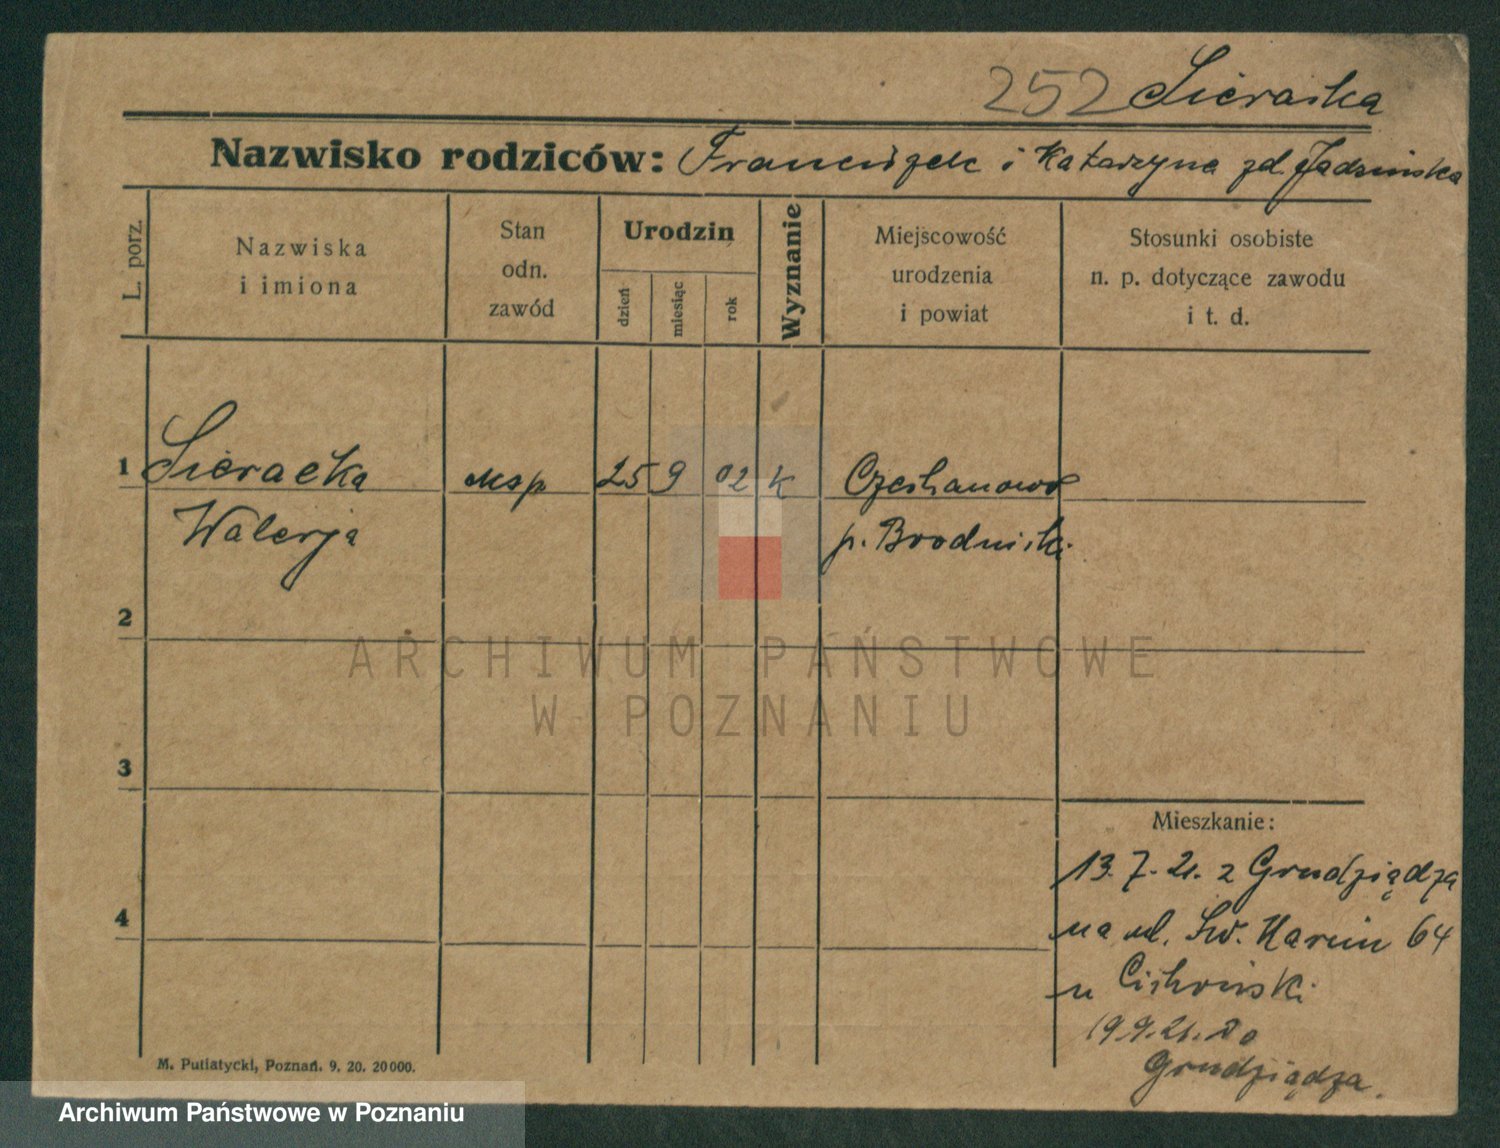 252 Sieracka
Nazwisko rodziców: Franciszek i Katarzyna zd.
L. porz.
Nazwiska
i imiona
Stan
odn.
zawód
Urodzin
dzień
miesiąc
rok
Wyznanie
Miejscowość
urodzenia
i powiat
Stosunki osobiste
n. p. dotyczące zawodu
i t. d.
1 Sieracka 25 9 02 k
Walerja p. Brodnicki
2
3
4
Mieszkanie:
13. 7. 21. z Grudziądza
na ul. Św. Marcin 64
u Cichoński
19. 9. 21. do
Grudziądza.
M. Putiatycki, Poznań. 9. 20. 20000.
ARCHIWUM PAŃSTWOWE
W POZNANIU
Archiwum Państwowe w Poznaniu